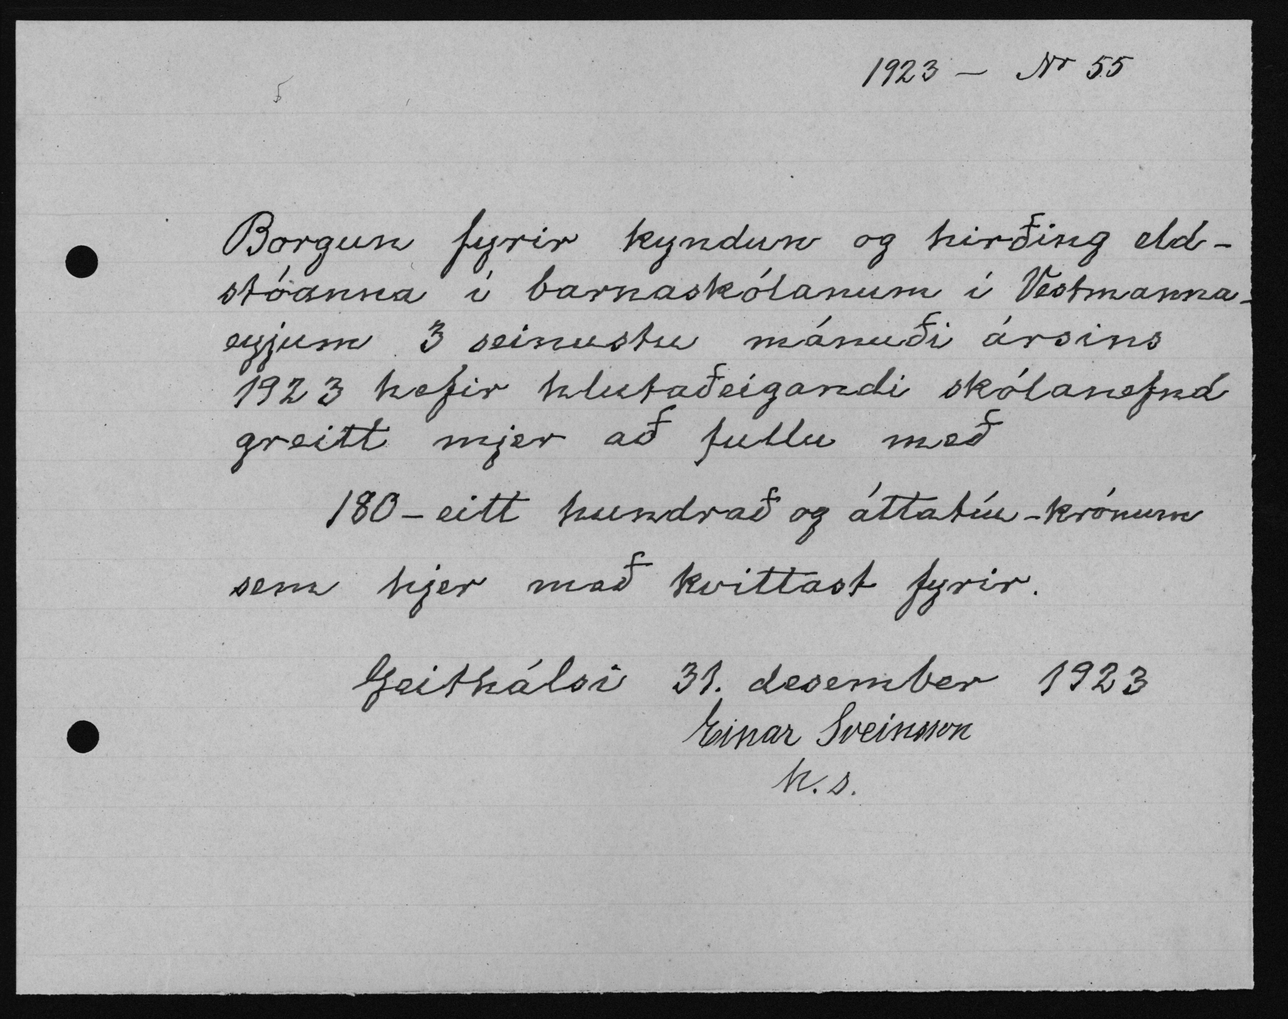 1923 – Nr 55
Borgun fyrir kyndun og hirðing eld-
stóanna í barnaskólanum í Vestmanna-
eyjum 3 seinustu mánuði ársins
1923 hefir hlutaðeigandi skólanefnd
greitt mjer að fullu með
180 – eitt hundrað og áttatíu – krónum
sem hjer með kvittast fyrir.
Geithálsi 31. desember 1923
Einar Sveinsson
h. s.